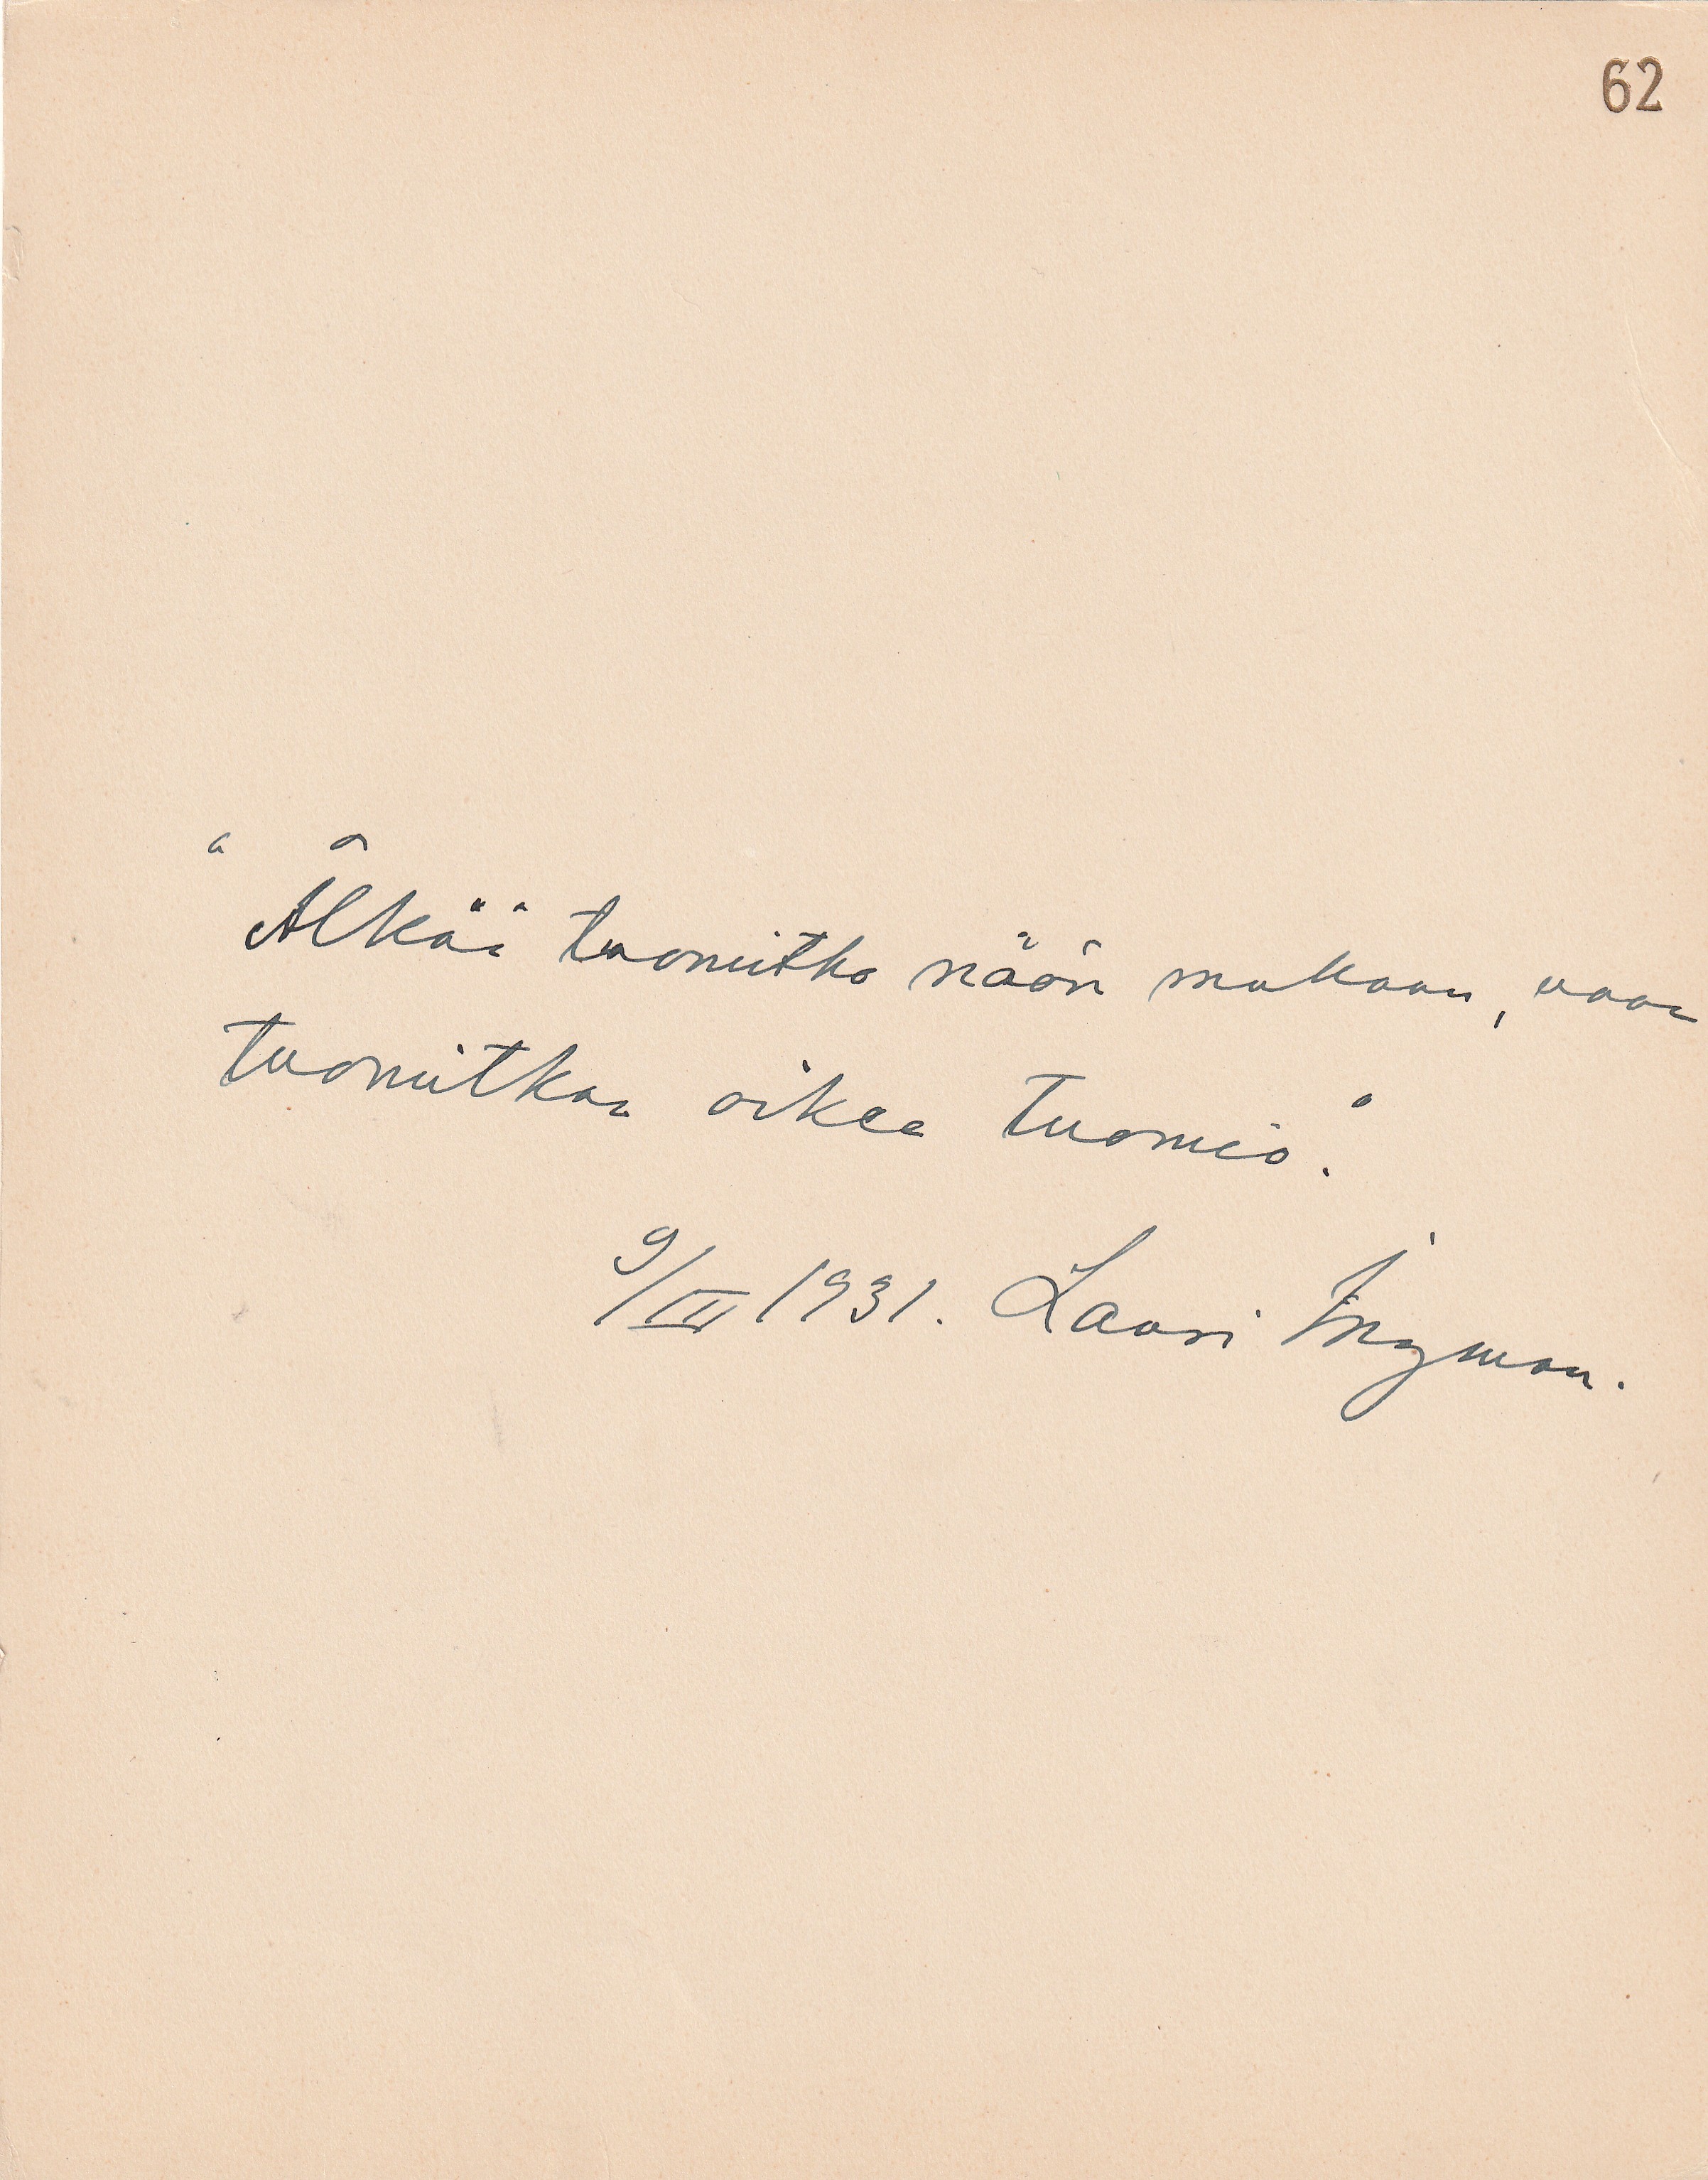 62
"Älkää tuomitko näön mukaan, vaan
tuomitkaa oikea tuomio."
9/III 1931. Lauri Ingman.